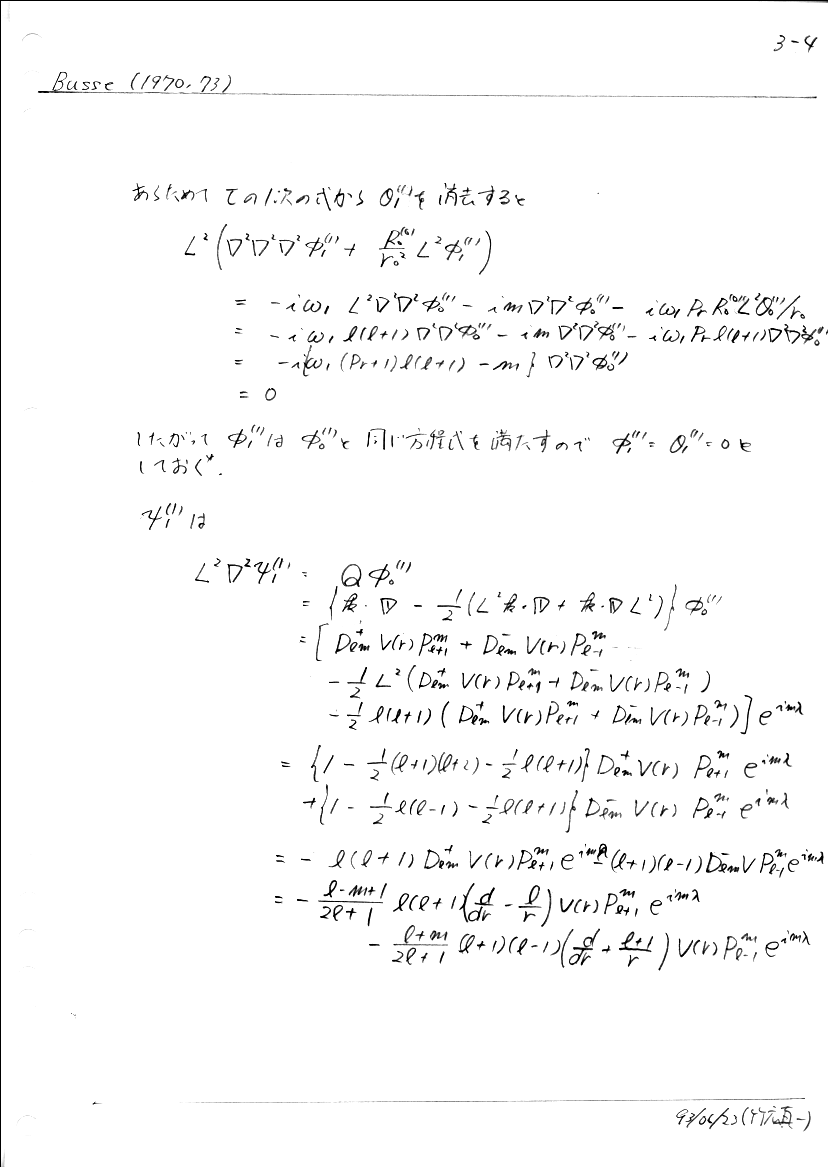 3-4
Busse (1970, 73)
あらためて τの1次の式から θ₁⁽¹⁾を 消去すると
L²(∇²∇²∇²Φ₁⁽¹⁾ + R₀⁽⁰⁾/r₀² L²Φ₁⁽¹⁾)
= -iω₁ L²∇²∇²Φ₀⁽¹⁾ - im∇²∇²Φ₀⁽¹⁾ - iω₁PrR₀⁽⁰⁾L²θ₀⁽¹⁾/r₀
= -iω₁ l(l+1)∇²∇²Φ₀⁽¹⁾ - im∇²∇²Φ₀⁽¹⁾ - iω₁Pr l(l+1)∇²∇²Φ₀⁽¹⁾
= -i{ω₁(Pr+1)l(l+1) - m}∇²∇²Φ₀⁽¹⁾
= 0
したがって Φ₁⁽¹⁾は Φ₀⁽¹⁾と 同じ方程式を満たすので Φ₁⁽¹⁾ = θ₁⁽¹⁾ = 0 と
しておく*.
Ψ₁⁽¹⁾は
L²∇²Ψ₁⁽¹⁾ = QΦ₀⁽¹⁾
= {k・∇ - 1/2(L²k・∇ + k・∇L²)}Φ₀⁽¹⁾
= [D⁺lm V(r)P^m_{l+1} + D⁻lm V(r)P^m_{l-1}
- 1/2 L²(D⁺lm V(r)P^m_{l+1} + D⁻lm V(r)P^m_{l-1})
- 1/2 l(l+1)(D⁺lm V(r)P^m_{l+1} + D⁻lm V(r)P^m_{l-1})]e^{imλ}
= {1 - 1/2(l+1)(l+2) - 1/2 l(l+1)}D⁺lm V(r) P^m_{l+1} e^{imλ}
+ {1 - 1/2 l(l-1) - 1/2 l(l+1)}D⁻lm V(r) P^m_{l-1} e^{imλ}
= - l(l+1)D⁺lm V(r)P^m_{l+1} e^{imλ} - (l+1)(l-1)D⁻lm V P^m_{l-1} e^{imλ}
= - (l-m+1)/(2l+1) l(l+1)(d/dr - l/r)V(r)P^m_{l+1} e^{imλ}
- (l+m)/(2l+1) (l+1)(l-1)(d/dr + (l+1)/r)V(r)P^m_{l-1} e^{imλ}
93/06/23(竹広真一)